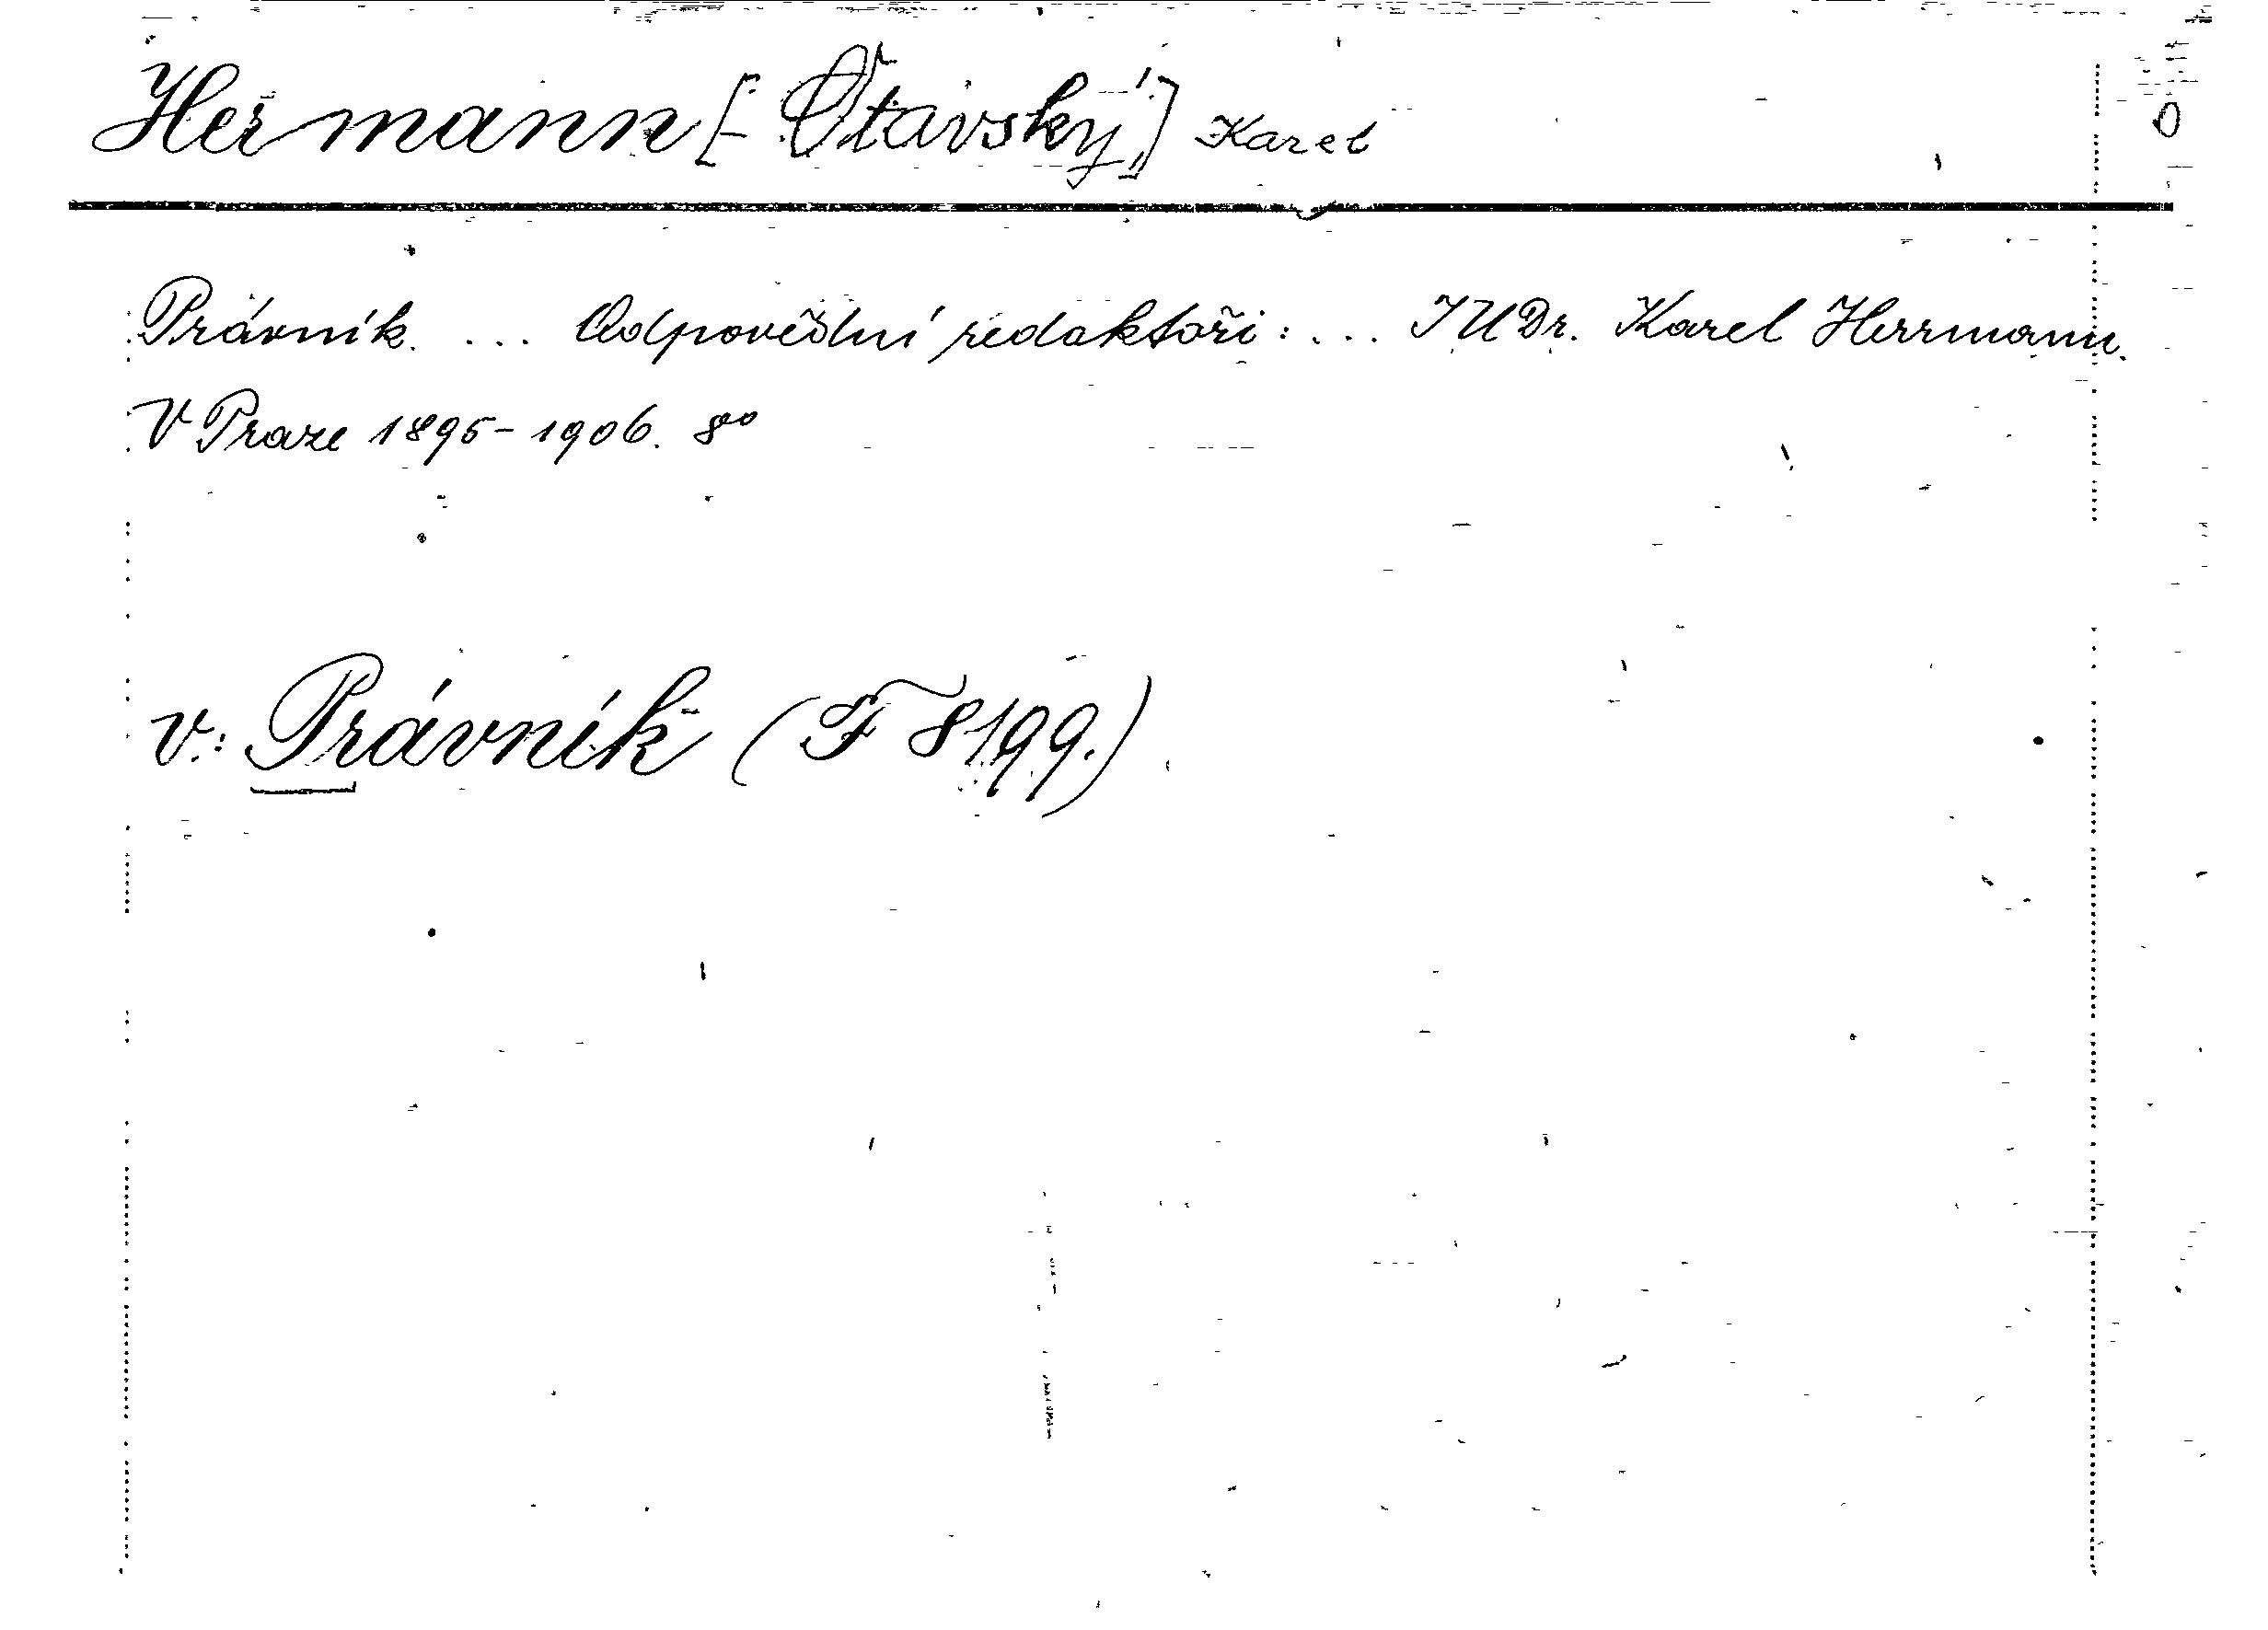 Hermann [-Otavský] Karel
Právník. ... Odpovědní redaktoři: ... JUDr. Karel Herrmann.
V Praze 1895-1906. 8°
v: Právník (F 8199.)